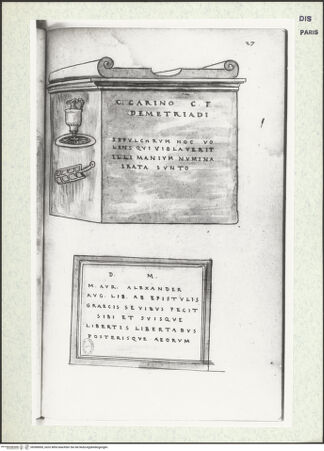 DIS
PARIS
27
C. CARINO C F
DEMETRIADI
SEPVLCHRVM HOC VO
LENS QVI VIOLAVERIT
ILLI MANIVM NVMINA
IRATA SVNTO
D. M.
M. AVR. ALEXANDER
AVG. LIB. AB EPISTVLIS
GRAECIS SE VIBVS FECIT
SIBI ET SVISQVE
LIBERTIS LIBERTABVS
POSTERISQVE AEORVM